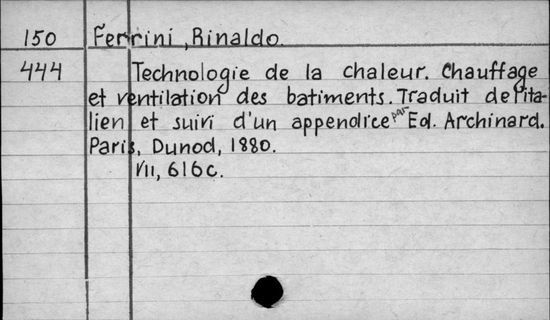 150 Ferrini, Rinaldo.
444 Technologie de la chaleur. Chauffage
et ventilation des batiments. Traduit de l'ita-
lien et suivi d'un appendice par Ed. Archinard.
Paris, Dunod, 1880.
VII, 616 c.